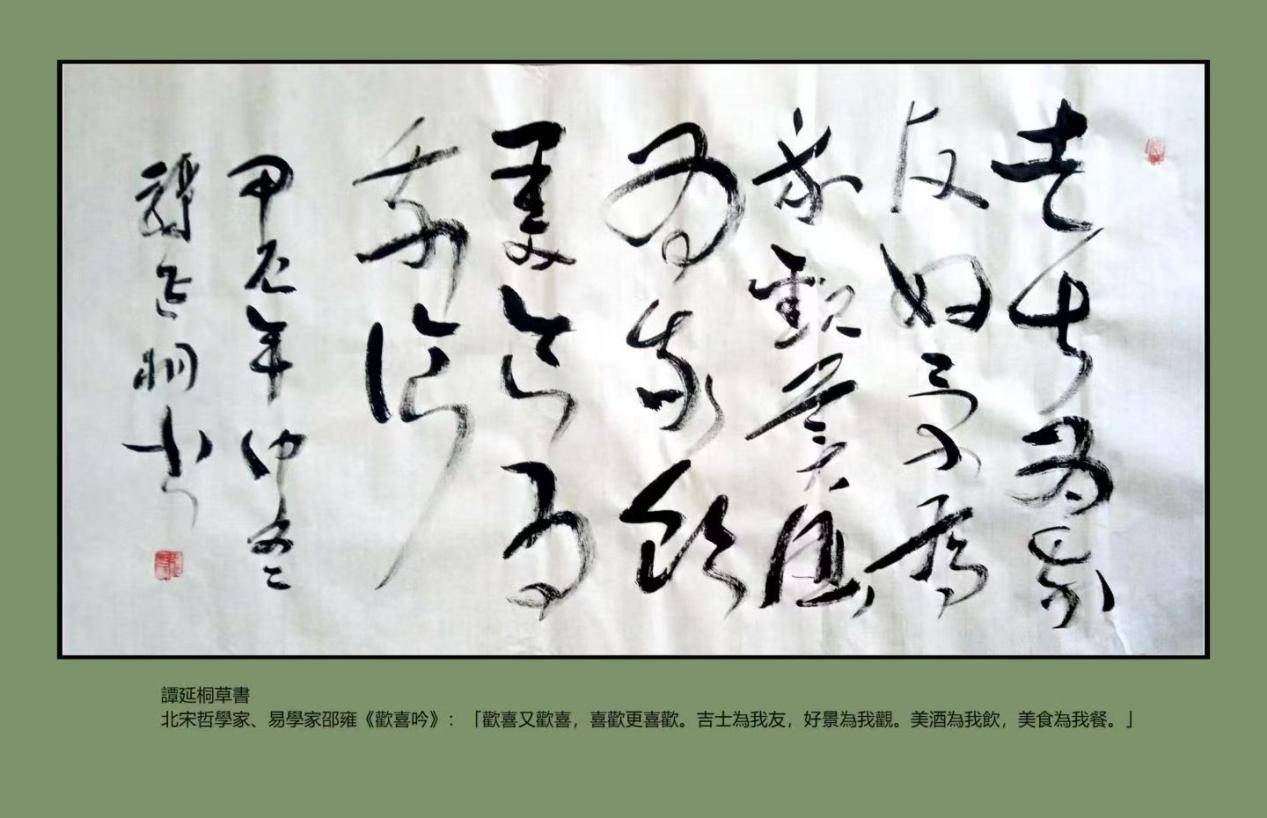 吉士為我
友好景為
我觀美酒
為我飲
美食為
我餐
甲辰年仲冬
譚延桐書
譚延桐草書
北宋哲學家、易學家邵雍《歡喜吟》：「歡喜又歡喜，喜歡更喜歡。吉士為我友，好景為我觀。美酒為我飲，美食為我餐。」